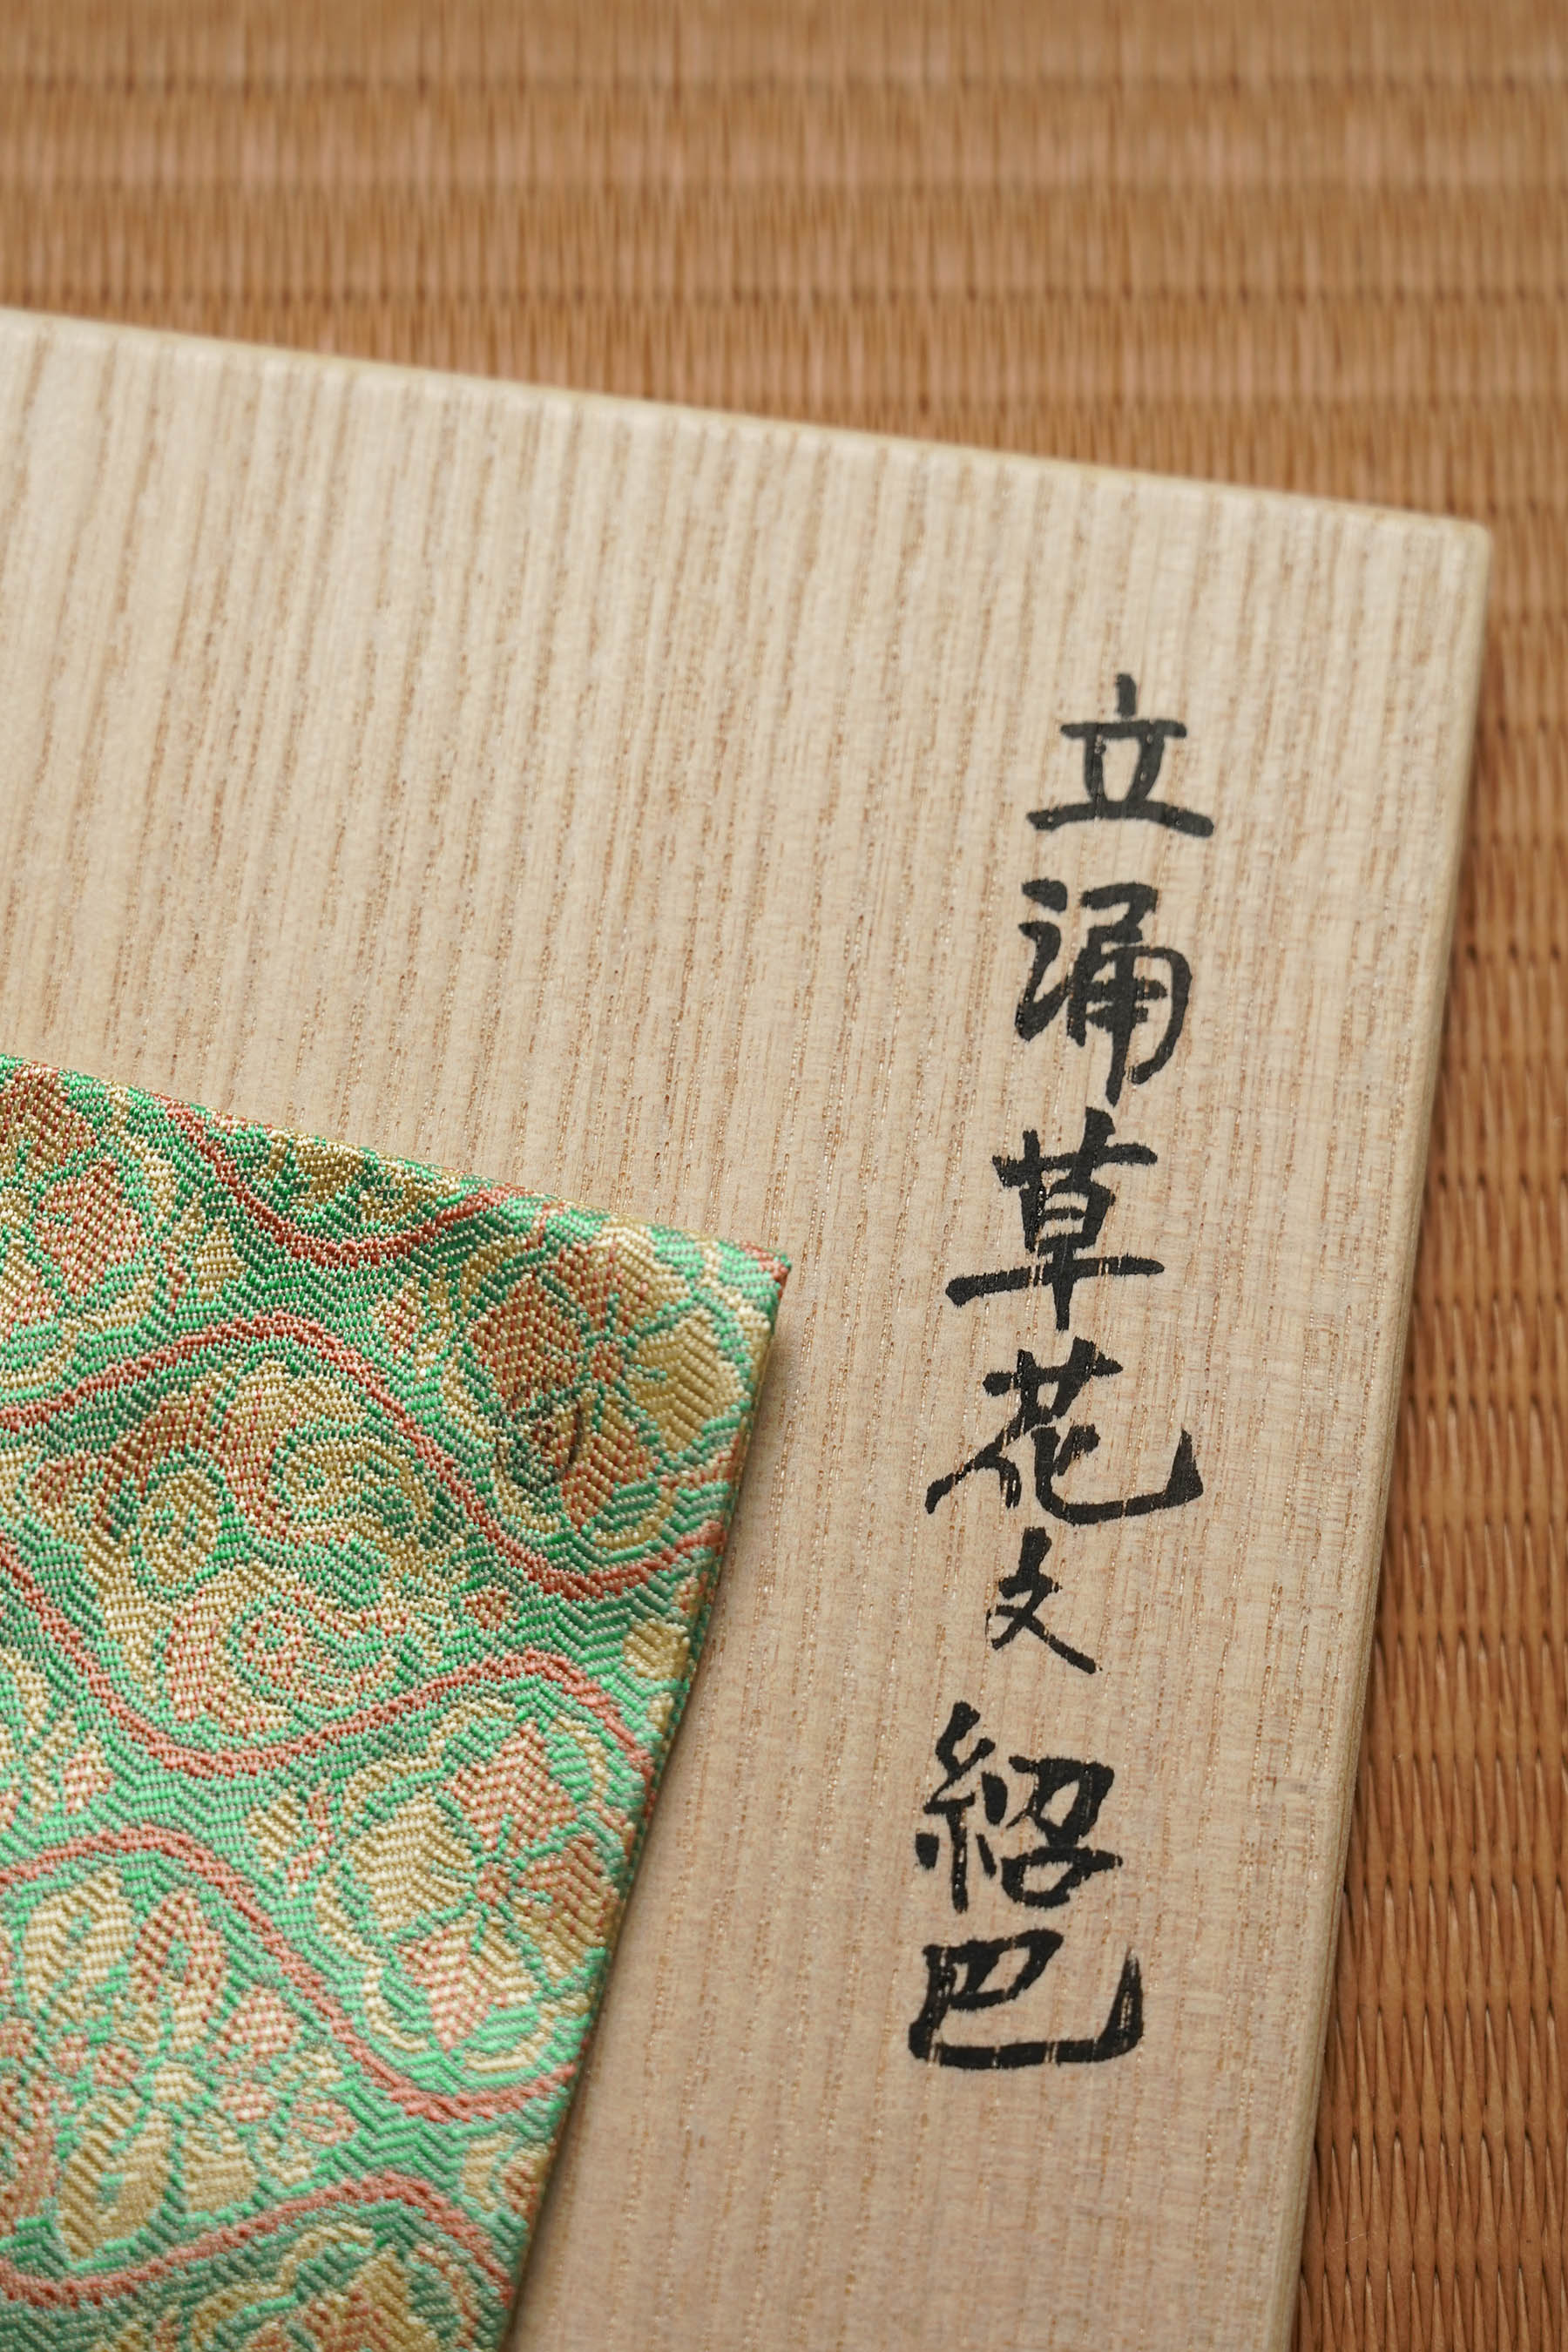 立涌草花文紹巴